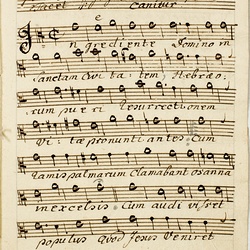 Canitur
In grediente Domino in
sanctam Civi ta tem Hebræo
rum pue ri resurrectionem
Vi tæ pronunti antes Cum
ramis palmarum Clamabant osanna
in excelsis Cum audi visset
populus quod Jesus Veniret